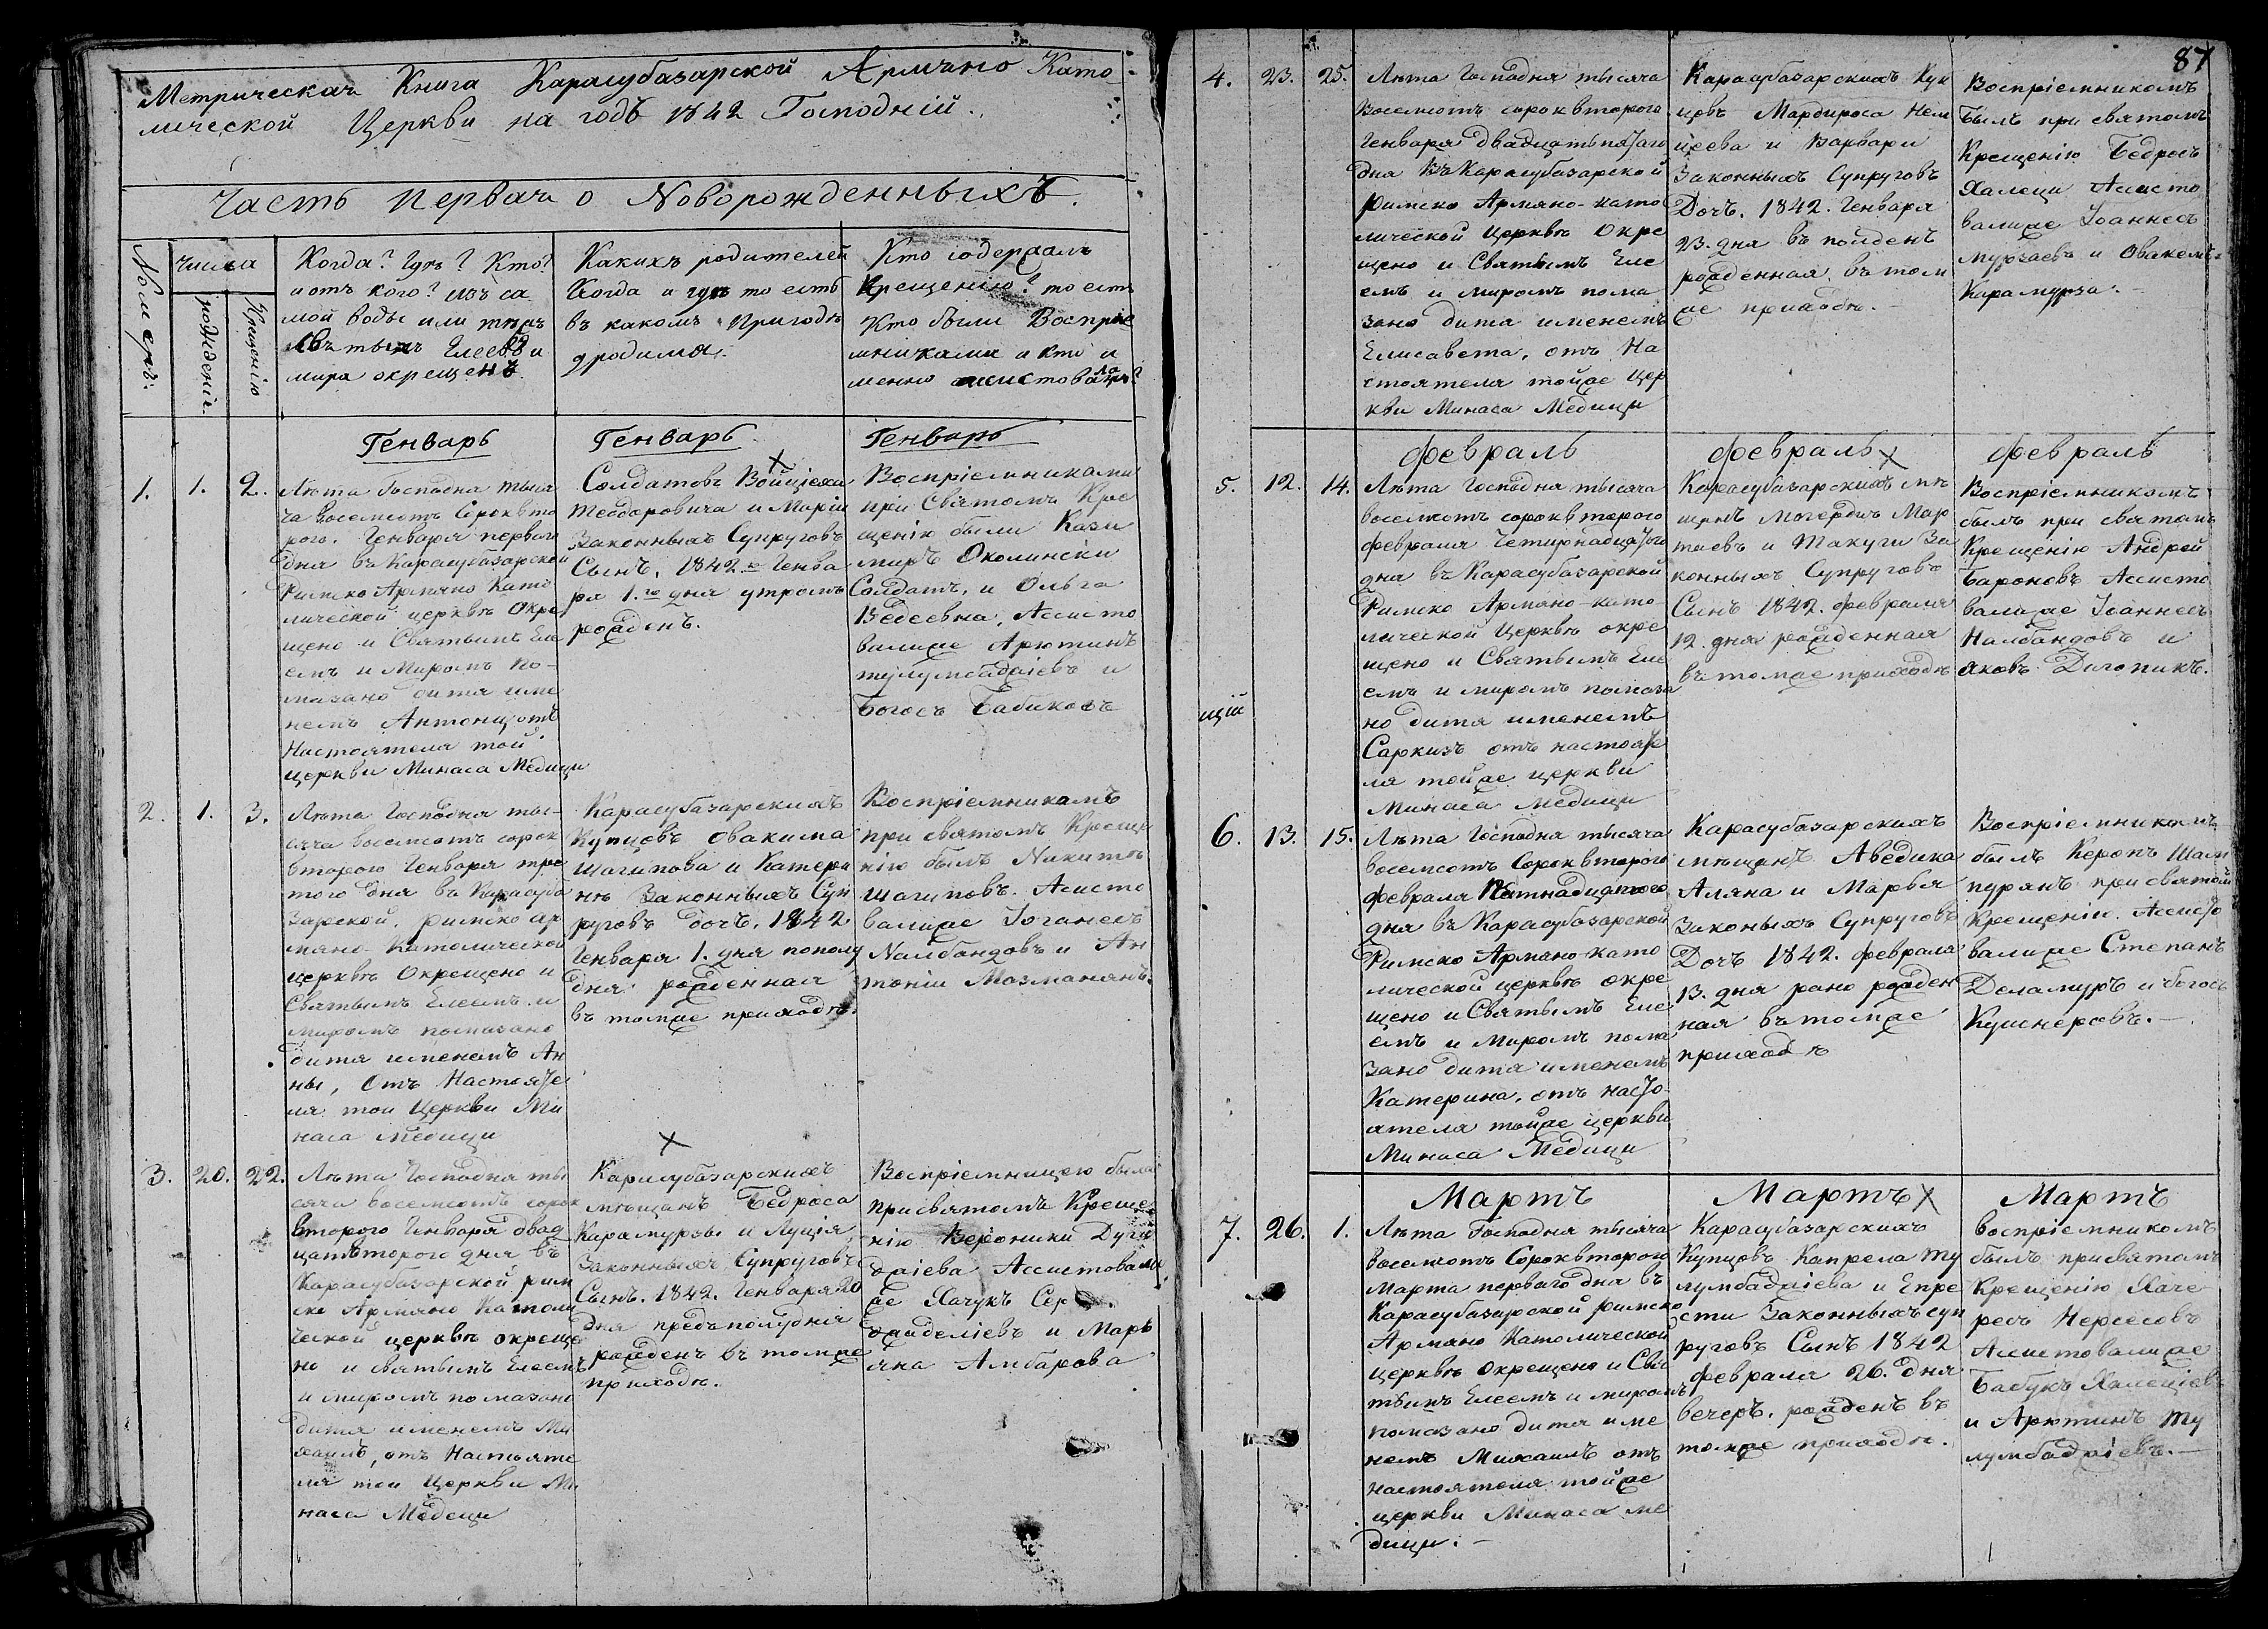 Метрическая Книга Карасубазарской Армяно Като
лической Церкви на годъ 1842 Господній.
Часть Первая о Новорожденныхъ.
Номеръ.
числа
рожденіе
Крещенію
Когда? Гдѣ? Кто?
и отъ кого? изъ са
мой воды или
Святыхъ Елеевъ и
мира окрещенъ
Какихъ родителей
Когда и гдѣ то есть
въ какомъ Приходѣ
уродился.
Кто содержалъ
Крещенію? то есть
Кто были Воспріе
мниками и кто и
менно ассистовали?
Генварь
Генварь
Генварь
1.
1.
2.
Лѣта Господня тыся
ча восемсотъ Сорокъ вто
рого. Генваря первого
дня въ Карасубазарской
Римско Армяно Като
лической церквѣ Окре
щено и Святымъ Еле
емъ и Миромъ по-
мазано дитя име
немъ Антоній отъ
Настоятеля той
церкви Минаса Медици
Солдатовъ Войцеха
Теодоровича и Маріи
Законныхъ Супруговъ
Сынъ, 1842 Генва
ря 1.го дня утромъ
рожденъ.
Воспріемниками
при Святомъ Кре
щенію были Кази
миръ Околински
Солдатъ, и Ольга
Ведеевна, Ассисто
валиже Арютинъ
тулумбаджіевъ и
Богосъ Бабиковъ
2.
1.
3.
Лѣта Господня тыс-
сяча восемсотъ сорок
второго Генваря тре
того дня въ Карасуба
зарской, римско ар
мяно-Католической
церквѣ Окрещено и
Святымъ Елеемъ и
миромъ помазано
дитя именемъ Ан
ны, Отъ Настояте
ля той Церкви Ми
наса Медици
Карасубазарскихъ
Купцовъ Овакима
Шагинова и Катери
нѣ Законныхъ Суп
руговъ дочь, 1842
Генваря 1. дня пополу
дня: рожденная
въ томже приходѣ.
Воспріемникамъ
при святомъ Креще
нію былъ Никитъ
шагиповъ. Асисто
валиже Іоганесъ
Налбандовъ и Ан
тоній Мазманянъ.
3.
20.
22.
Лѣта Господня ты
сяча восемсотъ сорок
второго Генваря двад
цатьвторого дня въ
Карасубазарской рим
ско Армяно Католи
ческой церквѣ окреще
но и святымъ Елеемъ
и миромъ помазано
дитя именемъ Ми
хаилъ, отъ Настояте
ля той Церкви Ми
наса Медеци
Карасубазарскихъ
мещанъ Бедроса
Карамурзы и Луція
Законныхъ Супруговъ
Сынъ. 1842. Генваря 20
дня предъ полудня
рожденъ въ томже
приходѣ.
Воспріемницею была
присвятомъ Креще
нію Вероники Дуго
жаіева Ассистовали
же Хачукъ Сер
данделіевъ и Марь
яна Амбарова
87
4.
23.
25.
Лѣта Господня тысяча
Восемсотъ сороквторого
Генваря двадцатьпятаго
дня въ Карасубазарской
Римско Армяно-като
лической Церквѣ Окре
щено и Святымъ Еле
емъ и миромъ пома
зано дитя именемъ
Елисавета, отъ На
стоятеля тойже Цер
кви Минаса Медици
Карасубазарскихъ Куп
цовъ Мардироса Нем
цеева и Варвари
Законныхъ Супруговъ
Дочь. 1842. Генваря
23. дня въ полденъ
рожденная, въ том
же приходѣ.-
Воспріемникомъ
Былъ при святомъ
Крещенію Бедросъ
Халеци Ассисто
валиже Іоаннесъ
мурзаевъ и Овакемъ
Карамурза.-
Февраль
Февраль
Февраль
5.
12.
14.
Лѣта Господня тысяча
восемсотъ сороквторого
февраля Четирнадцатого
дня въ Карасубазарской
Римско Армяно-като-
лической Церквѣ окре
щено и Святымъ Еле
емъ и миромъ помаза
но дитя именемъ
Саркизъ отъ настояте
ля тойже церкви
Минаса Медици
Карасубазарскихъ мѣ
щанъ Могердичъ Мар
таевъ и Такуги За
конныхъ Супруговъ
Сынъ 1842. февраля
12. дня рожденная
въ томже приходѣ
Воспріемникомъ
былъ при святомъ
Крещенію Андрей
Бароновъ Ассисто
валиже Іоаннесъ
Налбандовъ и
Яковъ Дегопикъ.
щій
6.
13.
15.
Лѣта Господня тысяча
восемсотъ Сороквторого
февраля Пятнадцятого
дня въ Карасубазарской
Римско Армяно-като
лической церквѣ окре
щено и Святымъ Еле
емъ и Миромъ пома
зано дитя именемъ
Катерина. отъ насто-
ятеля тойже церкви
Минаса Медици
Карасубазарскихъ
мещанъ Аведика
Аляна и Марья
Законыхъ Супруговъ
Дочь 1842. февраля
13. дня рано рожден
ная въ томже
приходѣ
Воспріемникомъ
былъ Керопъ Шам
пурянъ при святой
Крещеніи. Ассисто
валиже Степанъ
Деламуръ и богосъ
Кушнеровъ.-
Мартъ
Мартъ
Мартъ
7.
26.
1.
Лѣта Господня тысяча
Восемсотъ Сороквторого
Марта первого дня въ
Карасубазарской римско
Армяно Католической
Церквѣ окрещено и Свя
тымъ Елеемъ и миромъ
помазано дитя име
немъ Михаилъ отъ
настоятеля тойже
церкви Минаса ме
дици.-
Карасубазарскихъ
Купцовъ Капрела Ту
лумбаджіева и Епре
сти Законныхъ суп
руговъ Сынъ 1842
февраля 26. дня
вечеръ. рожденъ въ
томже приходѣ.
воспріемникомъ
былъ присвятомъ
Крещенію Хаче
ресъ Нерсесовъ
Ассистовалиже
Бабукъ Халеціевъ
и Арютинъ Ту
лумбаджіевъ.-